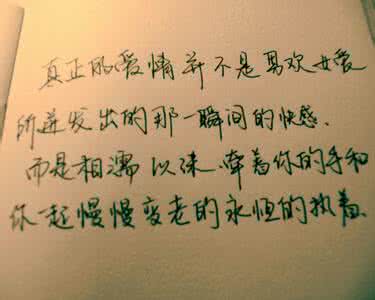 真正的爱情并不是男欢女爱
所迸发出的那一瞬间的快感、
而是相濡以沫、牵着你的手和
你一起慢慢变老的永恒的执着、